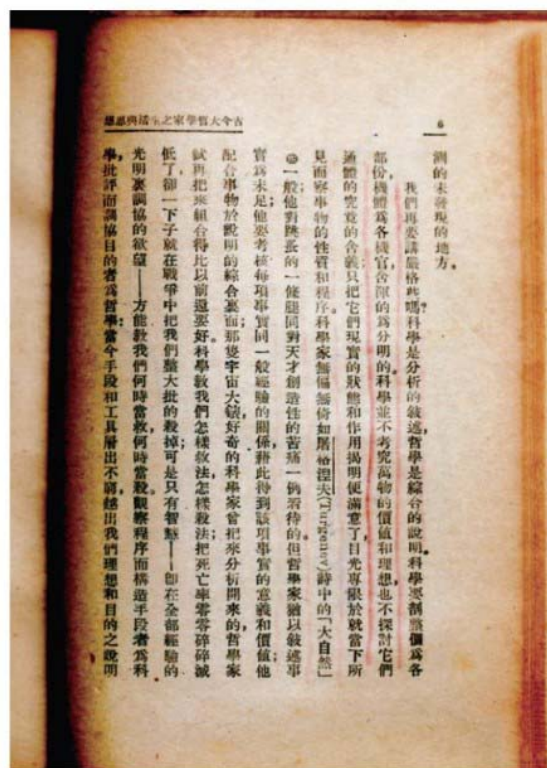 古今大哲學家之生活與思想
6
測的未發現的地方。
我們再要講嚴格些嗎?科學是分析的敘述,哲學是綜合的說明。科學要割整個為各
部份機體為各機官含渾的為分明的。科學並不考究萬物的價値和理想,也不探討它們
通體的究竟的含義只把它們現實的狀態和作用揭明便滿意了目光專限於就當下所
見而察事物的性質和程序。科學家無偏無倚如屠格涅夫(Turgenev)詩中的「大自然」
一般他對跳蚤的一條腿同對天才創造性的苦痛一例看待的。但哲學家雖以敘述事
實為未足;他要考核每項事實同一般經驗的關係,藉此得到該項事實的意義和價値;他
配合事物於說明的綜合裏面;那隻宇宙大錶,好奇的科學家曾把來分析開來的,哲學家
試再把來組合得比以前還要好。科學敎我們怎樣救法,怎樣殺法;把死亡率零零碎碎減
低了,卻一下子就在戰爭中把我們整大批的殺掉;可是只有智慧——卽在全部經驗的
光明裏調協的欲望——方能敎我們何時當救,何時當殺。觀察程序而構造手段者為科
學,批評而調協目的者為哲學;當今手段和工具層出不窮,越出我們理想和目的之說明